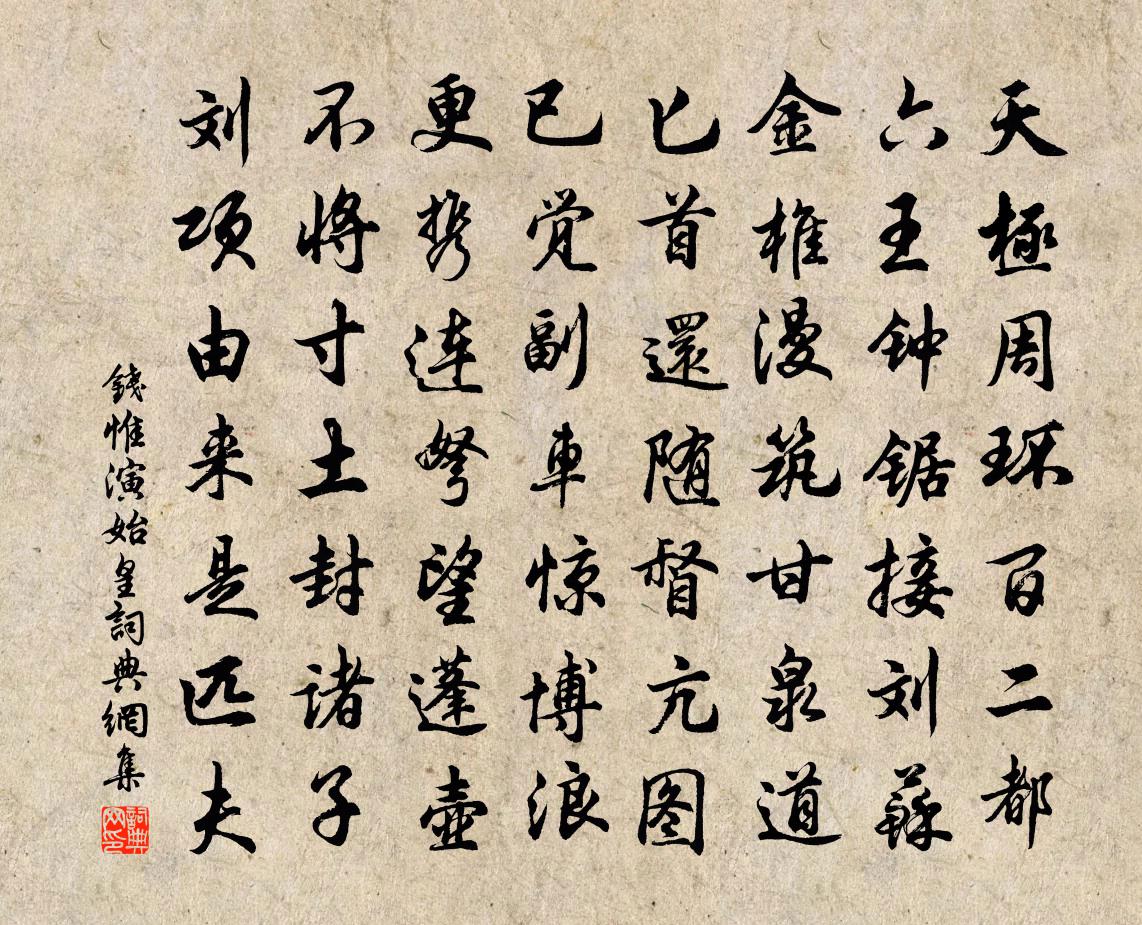 天極周环百二都
六王钟锯接刘蘇
金椎漫筑甘泉道
匕首還随督亢图
已觉副車惊博浪
更携连弩望蓬壷
不将寸土封诸子
刘项由来是匹夫
錢惟演始皇詞典網集
詞典网印